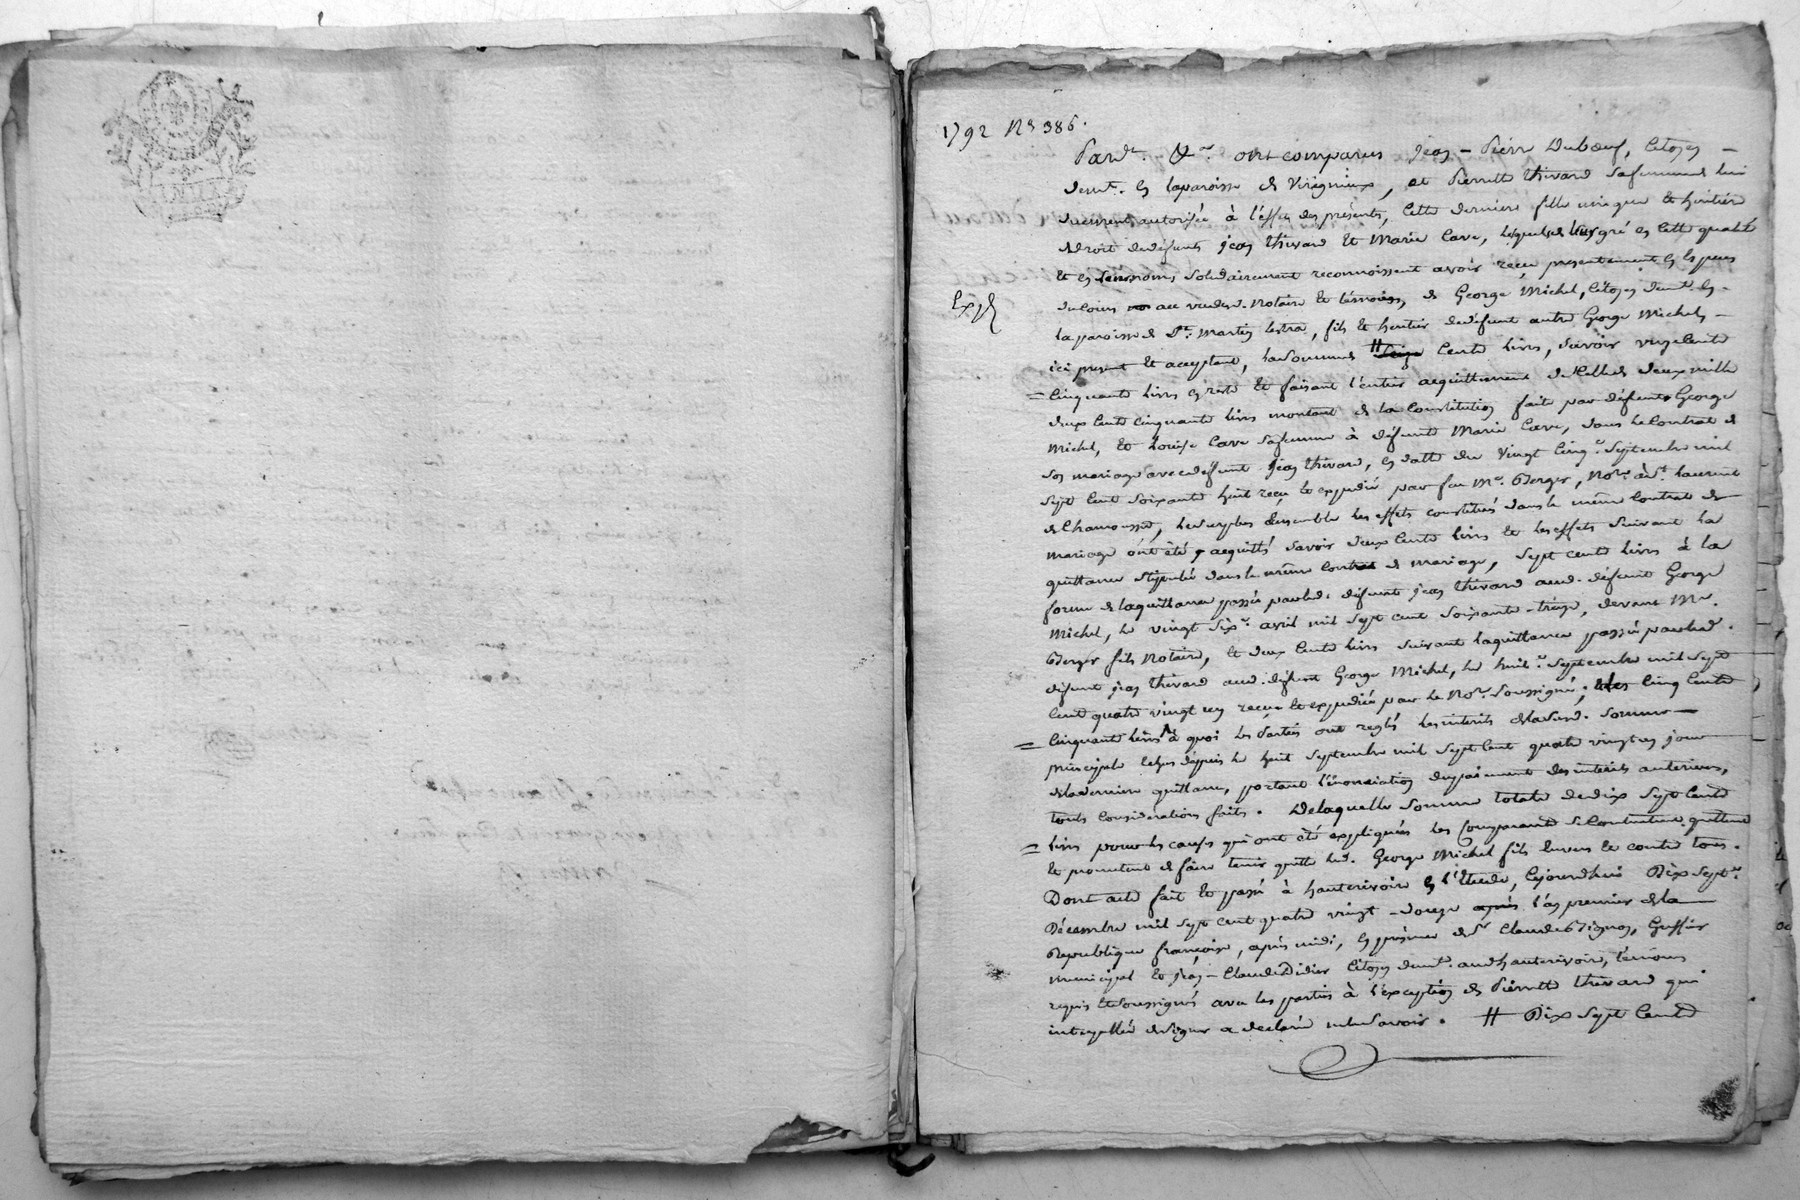 1792 N° 386.
Pard.t &.a ont comparus jean - Pierre Duboeuf, Citoyen -
demt. en la paroisse de Virigneux, et Pierrette thivard sa femme de lui
duement autorisée à l'effet des présentes, cette derniere fille unique et héritière
de droit de défunts jean thivard et Marie Cave, lesquels de leur gré en cette qualité
et en leurs noms solidairement reconnoissent avoir reçu presentement en espèces
Exp.é
de cours au vu desd. Notaire et témoins, de George Michel, Citoyen demt. en -
la paroisse de St. Martin lestra, fils et heritier de défunt autre George Michel, -
ici present et acceptant, la somme de # Seize Cents livres, savoir onze Cents
= Cinquante livres en reste et faisant l'entier acquittement de Celle de deux mille
deux Cents cinquante livres montant de la Constitution faite par défunts George
Michel, et Louise Cave sa femme à défunte Marie Cave, dans le Contrat de
son mariage avec défunt jean thivard, en datte du vingt Cinq.e Septembre mil
Sept Cent Soixante huit reçu et expédié par feu Me. Berger, Nore. à St. laurent
de Chamousset, le surplus Ensemble les effets constitués dans le même Contrat de
mariage ont été acquittés savoir deux Cents livres et les effets suivant la
quittance stipulée dans le même Contrat de mariage, Sept Cents livres à la
forme de la quittance passée par led. défunt jean thivard aud. défunt George
Michel, le vingt Six.e avril mil Sept Cent Soixante - treize, devant Me.
Berger fils Notaire, et deux Cents livres suivant la quittance passée par led.
défunt jean thivard aud. défunt George Michel, le huit.e Septembre mil Sept
Cent quatre vingt un reçue et expédiée par le Nore. Soussigné; et les Cinq Cents
= Cinquante livres à quoi les Parties ont reglés les interets de lad. Somme -
principale échus depuis le huit Septembre mil Sept Cent quatre vingt un jour
de la derniere quittance, portant l'énonciation du paiement des interêts anterieurs,
toute Considération faite. De laquelle Somme totale de dix Sept Cents
= livres pour les causes qui ont été expliquées les Comparants se Contentent, quittent
et promettent de faire tenir quitte led. George Michel fils Envers et contre tous.
Dont acte fait et passé à hauterivoire en l'Etude, Cejourdhui Dix Sept.e
Décembre mil Sept Cent quatre vingt - douze après l'an premier de la
Republique françoise, après midi, en présence de Sr. Claude Bignon, Greffier
municipal et jean - Claude Didier Citoyen demt. aud hauterivoire, témoins
requis et Soussignés avec les parties à l'exception de Pierrette thivard qui
interpellée de signer a declaré ne le Savoir. # Dix Sept Cents